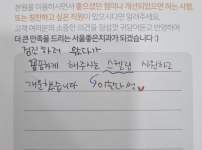 본원을 이용하시면서 좋으셨던 점이나 개선되었으면 하는 사항,
또는 칭찬하고 싶은 직원이 있으시다면 알려주세요.
고객 여러분의 소중한 의견을 정성껏 귀담아듣고 반영하여
더 큰 만족을 드리는 서울좋은치과가 되겠습니다 :)
검진하러 왔다가
꼼꼼하게 해주시는 스켈링 시원하고
개운했습니다